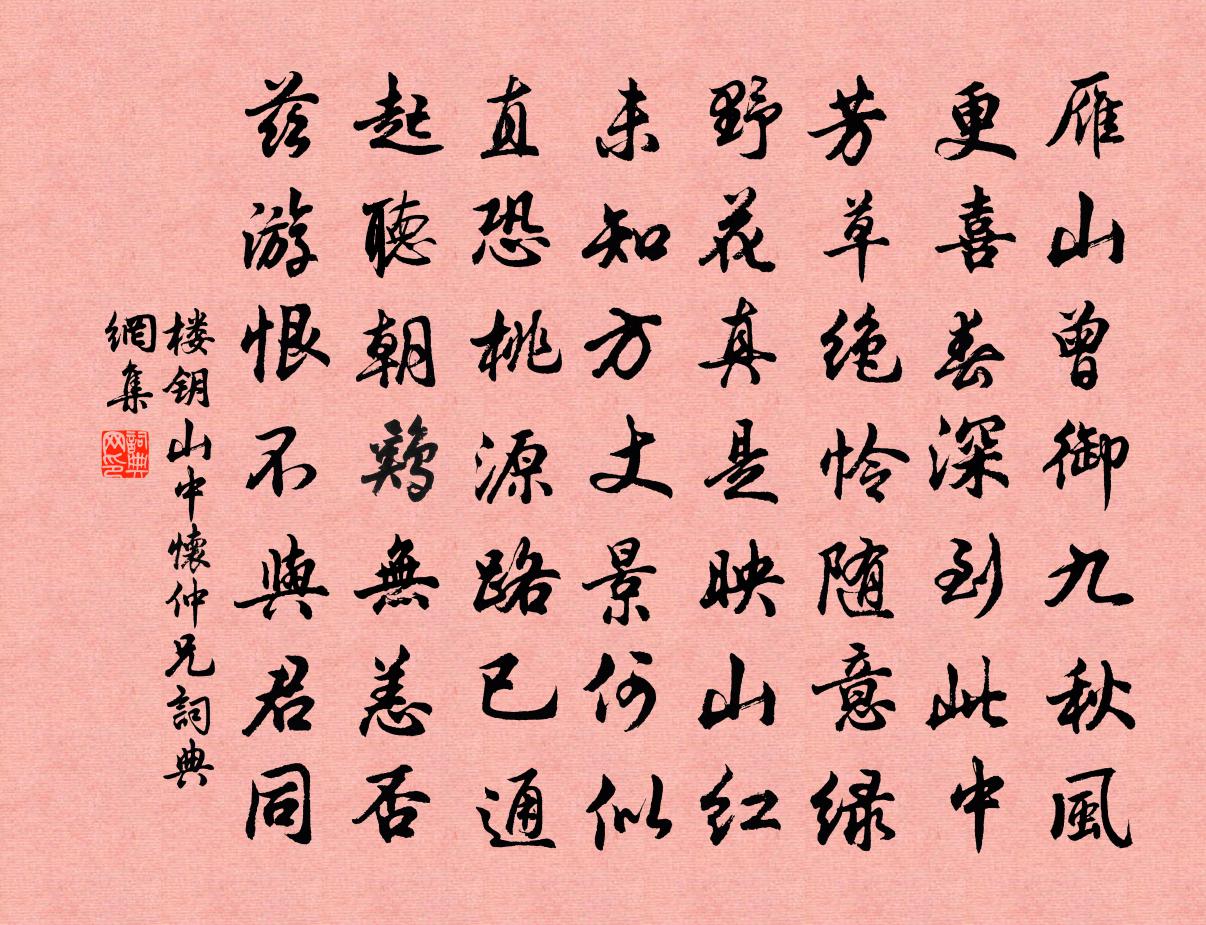 雁山曾御九秋風
更喜春深到此中
芳草绝怜随意绿
野花真是映山红
未知方丈景何似
直恐桃源路已通
起聽朝鷄無恙否
兹游恨不與君同
楼钥山中懷仲兄詞典
網集
詞典
网印